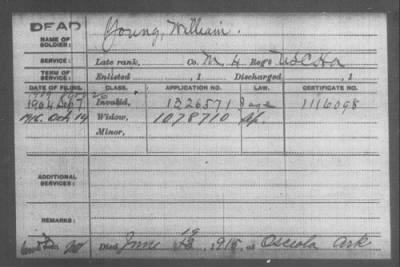 DEAD
NAME OF SOLDIER: Young, William.
SERVICE: Late rank, Co. M, 4 Reg't USCHA
TERM OF SERVICE: Enlisted , 1 Discharged , 1
DATE OF FILING. CLASS. APPLICATION NO. LAW. CERTIFICATE NO.
1904 Invalid, 1326571 1116098
1916. Oct 14 Widow, 1078710
Minor,
ADDITIONAL SERVICES:
REMARKS:
Died June 1915, at Osceola Ark